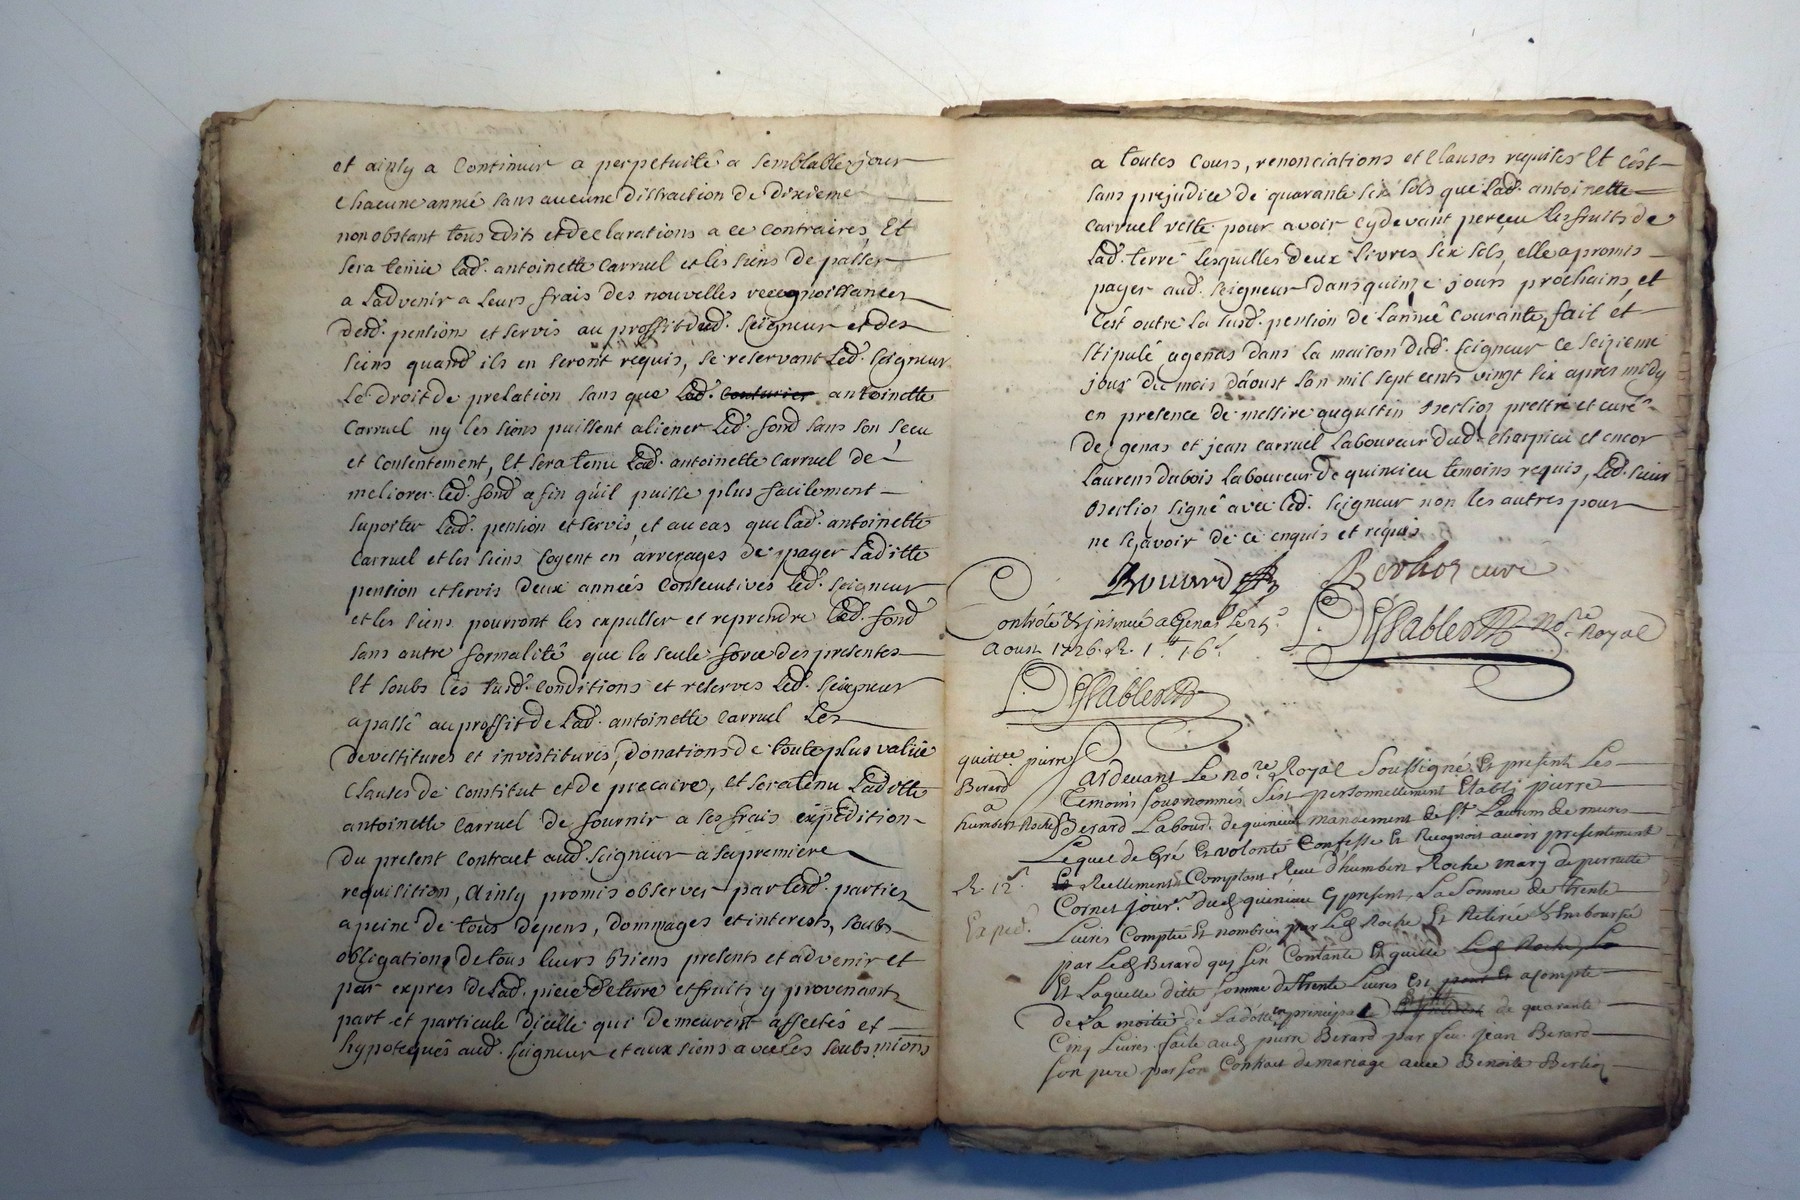 et ainsy a Continuer a perpetuité a semblable jour
chacune anneé sans aucune distraction de dixieme
nonobstant tous edits et declarations a ce contraires, Et
sera tenue Lad. antoinette Carruel et les siens de passer
a Ladvenir a Leurs frais des nouvelles recognoissances
desd. pension et servis au proffit dud. Seigneur et des
siens quand ils en seront requis, se reservant Led. seigneur
Le droit de prelation sans que Lad. antoinette
Carruel ny les siens puissent aliener Led. fond sans son sceu
et consentement, Et sera tenu Lad. antoinette Carruel de
meliorer Led. fond afin qu'il puisse plus facilement
suporter Lad. pension et servis, et au cas que Lad. antoinette
Carruel et les siens soyent en arrerages de payer Laditte
pension et servis deux anneés consecutives Led. seigneur
et les siens pourront les expulser et reprendre Led. fond
sans autre formalité que la seule force des presentes
Et soubs les susd. conditions et reserves Led. seigneur
a passé au proffit de Lad. antoinette Carruel Les
devestitures et investitures, donations de toute plus valüe
Clauses de Constitut et de precaire, et sera tenu Laditte
antoinette Carruel de fournir a ses frais expedition
du present contract aud. seigneur a sa premiere
requisition, Ainsy promis observer par lesd. parties
a peine de tous depens, dommages et interests, soubs
obligations de tous leurs Biens presents et advenir et
par expres de Lad. piece de terre et fruits y provenants
part et particule d'icelle qui demeurent affectés et
hypotequés aud. seigneur et aux siens avec les soubsmions
a toutes Cours, renonciations et Clauses requises Et c'est
sans prejudice de quarante six sols que Lad. antoinette
Carruel reste pour avoir cy devant perçeu les fruits de
Lad. terre Lesquelles deux livres six sols, elle a promis
payer aud. seigneur dans quinze jours prochains, et
C'est outre la susd. pension de l'anneé courante, fait et
stipulé a genas dans La maison dud. seigneur ce seizieme
jour du mois d'aoust l'an mil sept cents vingt six apres midy
en presence de messire augustin Berlioz prestre et curé
de genas et jean Carruel Laboureur dud. charpieu et encor
Laurens dubois Laboureur de quincieu temoins requis, Led. sieur
Berlioz signé avec led. seigneur non les autres pour
ne sçavoir de ce enquis et requis
Berlioz curé
Controlé & insinué a Genas le 25
Aoust 1726. R. 1 16
No.re Royal
quitt.ce pierre
Berard
a
humbert Roche
R. 12
Exped.
Pardevant Le no.re Royal Soussigné Et presents Les
temoins sousnommés s'est personnellement Etabli pierre
Berard Labour. de quincieu mandement de St. Laurens de mures
Lequel de Gré Et volonté Confesse Et Recognoit avoir presentement
Et Reellement Comptant Receu d'humbert Roche mary de perrette
Cornet jour. dud quincieu Cy present La Somme de trente
Livres Comptée Et nombrée par Led Roche Et Retirée & Emboursée
par Led Berard qui s'en Contante Et quitte Led Roche
Et Laquelle ditte somme de trente Livres Est a compte
de La moitié de La dotte principale de quarante
Cinq Livres faite aud pierre Berard par feu jean Berard
son pere par son Contract de mariage avec Benoite Berlioz